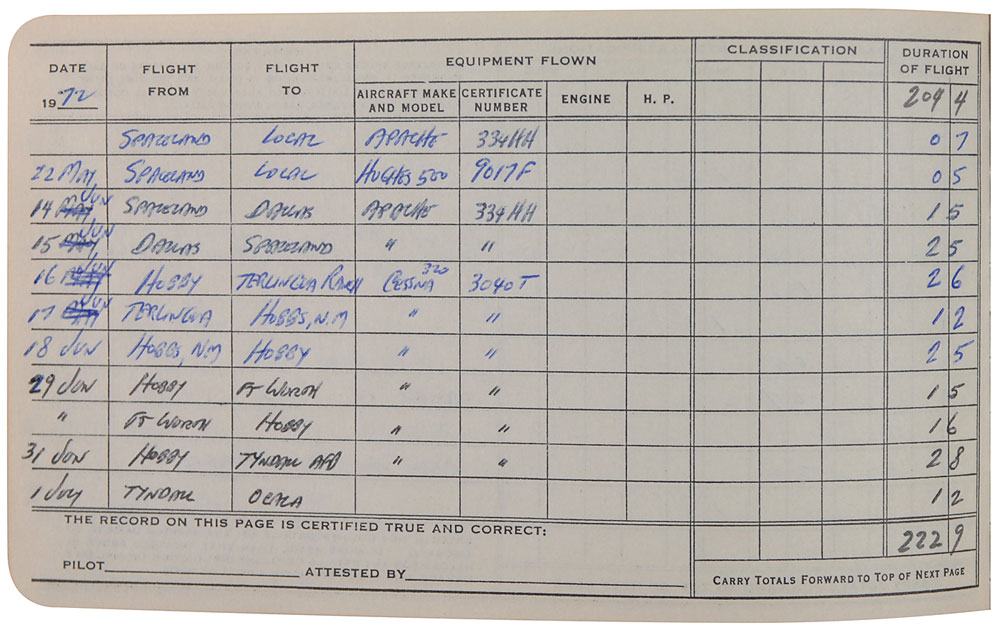 DATE FLIGHT FROM FLIGHT TO EQUIPMENT FLOWN CLASSIFICATION DURATION OF FLIGHT
1972 AIRCRAFT MAKE AND MODEL CERTIFICATE NUMBER ENGINE H. P. 209 4
SPACELAND LOCAL APACHE 334HH 0 7
22 MAY SPACELAND LOCAL HUGHES 500 9017F 0 5
14 JUN SPACELAND DALLAS APACHE 334HH 1 5
15 JUN DALLAS SPACELAND " " 2 5
16 JUN HOBBY TERLINGUA RANCH CESSNA 320 3040T 2 6
17 JUN TERLINGUA HOBBS, N.M " " 1 2
18 JUN HOBBS, NM HOBBY " " 2 5
29 JUN HOBBY FT WORTH " " 1 5
" FT WORTH HOBBY " " 1 6
31 JUN HOBBY TYNDALL AFB " " 2 8
1 JULY TYNDALL OCALA 1 2
THE RECORD ON THIS PAGE IS CERTIFIED TRUE AND CORRECT:
222 9
PILOT ATTESTED BY CARRY TOTALS FORWARD TO TOP OF NEXT PAGE